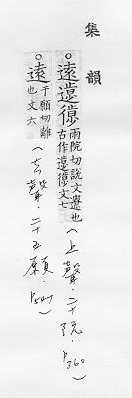 集韻
○遠
雨阮切說文遼也
古作
文七
(上聲·二十阮·P360)
○遠
于願切離
也文六
(去聲·二十五願·